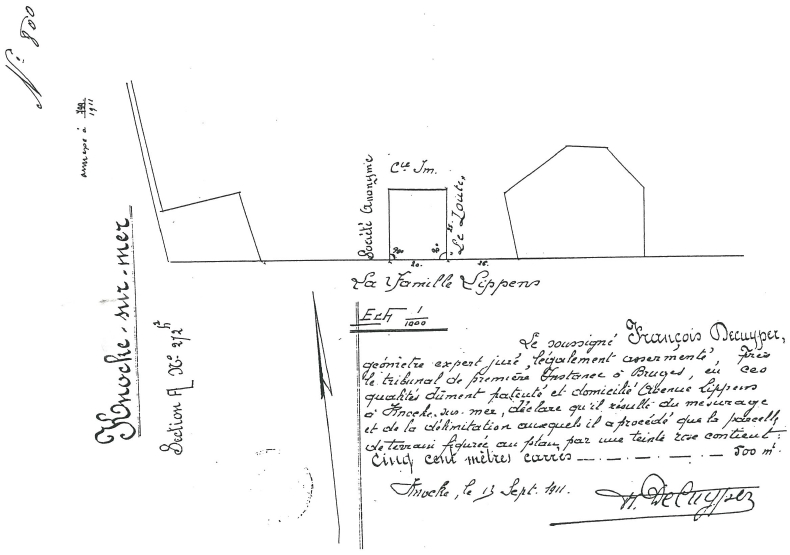 N° 800
annexé à
1911
Knocke-sur-mer
Section A N° 272
Société Anonyme
Cie Im.
Le Zoute
90°
90°
20.
25.
25.
La Famille Lippens
Ech 1/1000
Le soussigné François Decuyper,
géomètre expert juré, légalement assermenté, près
le tribunal de première Instance à Bruges, en ces
qualités dûment patenté et domicilié Avenue Lippens
à Knocke-sur-mer, déclare qu'il résulte du mesurage
et de la délimitation auxquels il a procédé que la parcelle
de terrain figurée au plan, par une teinte rose contient:
Cinq cent mètres carrés — . — . — . — 500 m².
Knocke, le 13 Sept. 1911.
Decuyper